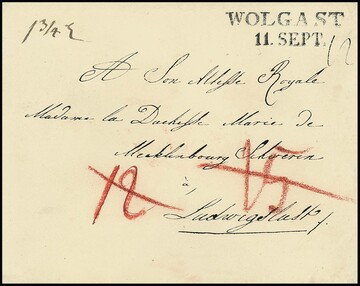 WOLGAST
11. SEPT.
1 3/4
A Son Altesse Royale
Madame la Duchesse Marie de
Mecklenbourg Schwerin
à
Ludwigslust
12
15